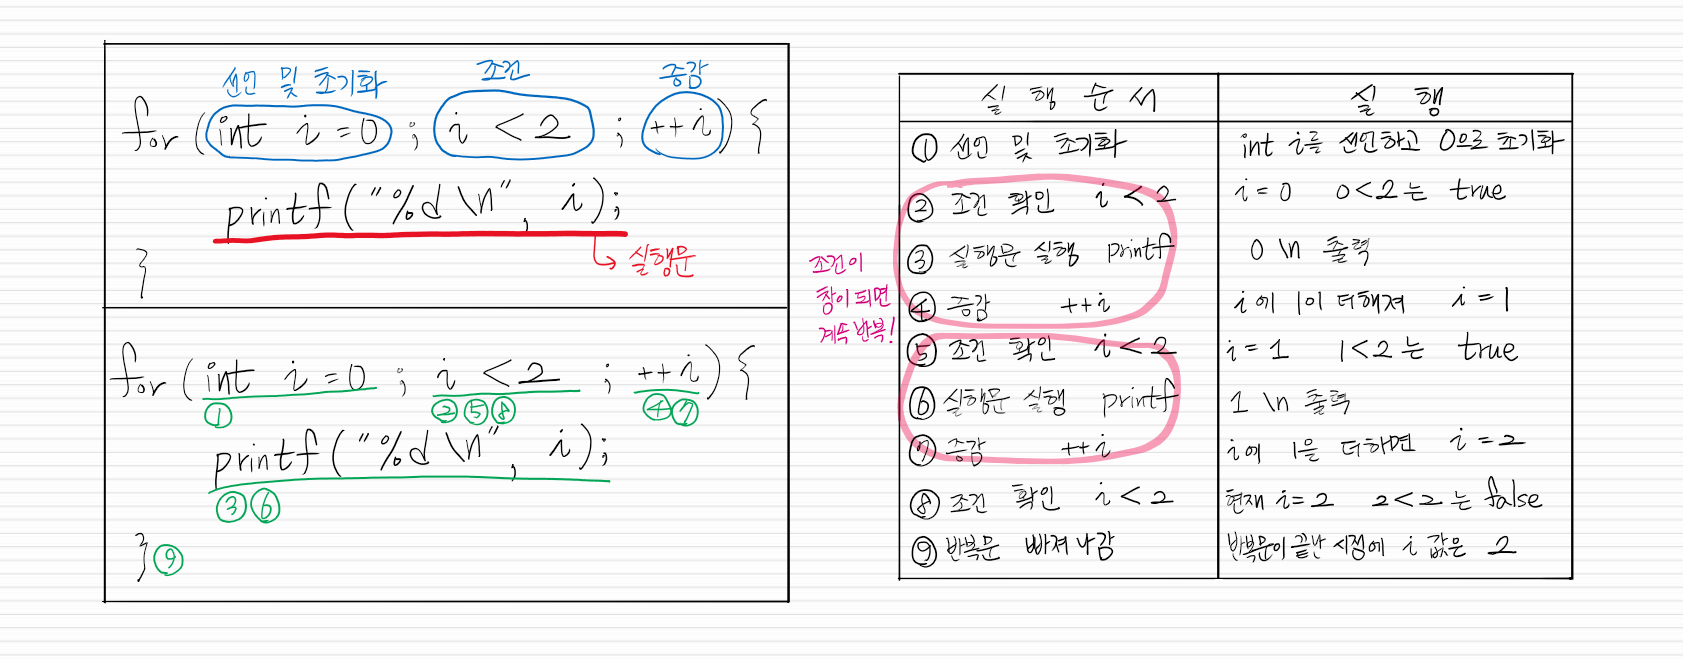 선언 및 초기화 조건 증감
for (int i=0 ; i <2 ; ++i) {
printf("%d \n", i);
}
실행문
for (int i=0 ; i <2 ; ++i) {
① ②⑤⑧ ④⑦
printf("%d \n", i);
③⑥
} ⑨
조건이
참이 되면
계속 반복!
실행순서 실행
① 선언 및 초기화 int i를 선언하고 0으로 초기화
② 조건 확인 i <2 i=0 0<2는 true
③ 실행문 실행 printf 0 \n 출력
④ 증감 ++i i에 1이 더해져 i=1
⑤ 조건 확인 i<2 i=1 1<2는 true
⑥ 실행문 실행 printf 1 \n 출력
⑦ 증감 ++i i에 1을 더하면 i=2
⑧ 조건 확인 i <2 현재 i=2 2<2는 false
⑨ 반복문 빠져나감 반복문이 끝난 시점에 i 값은 2